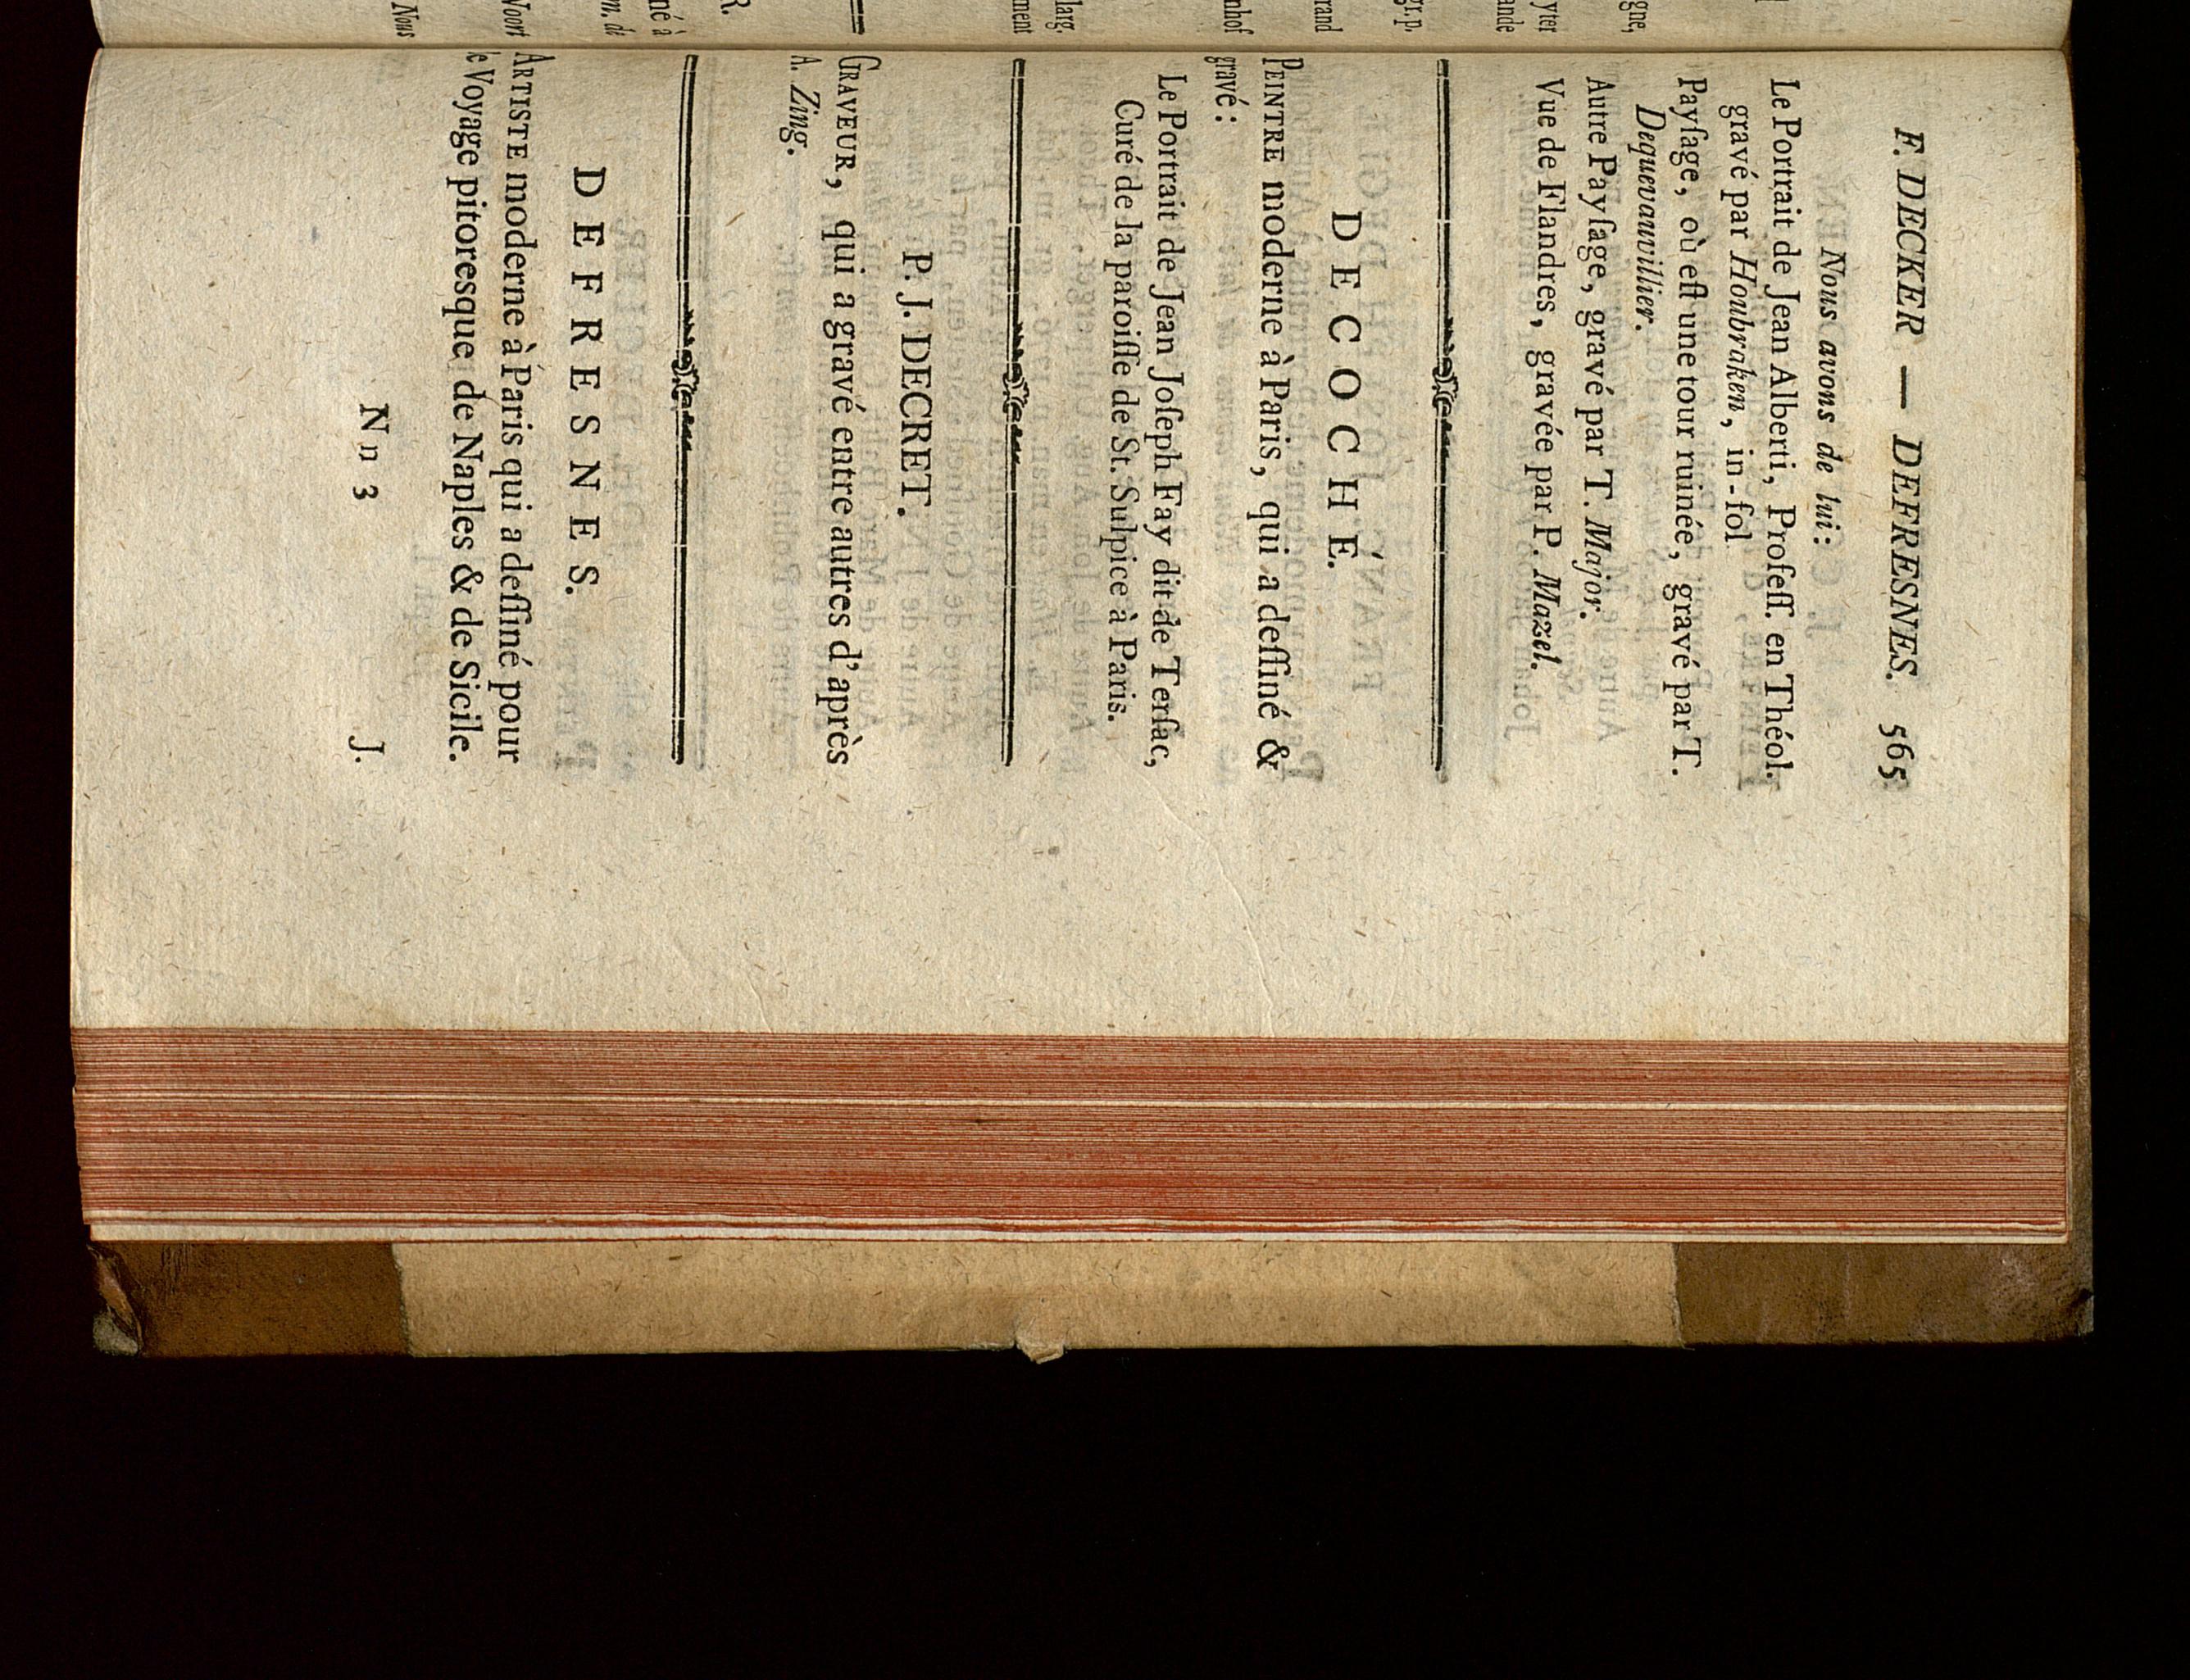 F. DECKER — DEFRESNES. 565
Nous avons de lui:
Le Portrait de Jean Alberti, Profeſſ. en Théol.
gravé par Houbraken, in-fol
Payſage, où eſt une tour ruinée, gravé par T.
Dequevauvillier.
Autre Payſage, gravé par T. Major.
Vue de Flandres, gravée par P. Mazel.
DECOCHÉ.
PEINTRE moderne à Paris, qui a deſſiné &
gravé:
Le Portrait de Jean Joſeph Fay dit de Terſac,
Curé de la paroiſſe de St. Sulpice à Paris.
P. J. DECRET.
GRAVEUR, qui a gravé entre autres d'après
A. Zing.
DEFRESNES.
ARTISTE moderne à Paris qui a deſſiné pour
le Voyage pitoresque de Naples & de Sicile.
Nn 3 J.